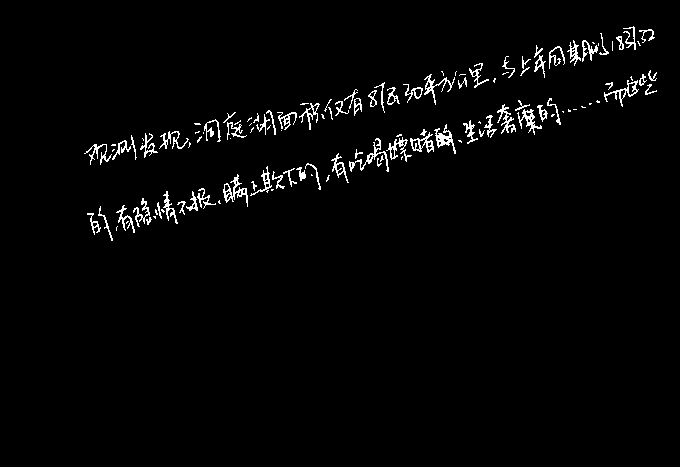 观测发现，洞庭湖面积仅有878.30平方公里，与上年同期的1837.32
的，有隐情不报、瞒上欺下的，有吃喝嫖赌的、生活奢靡的……而这些